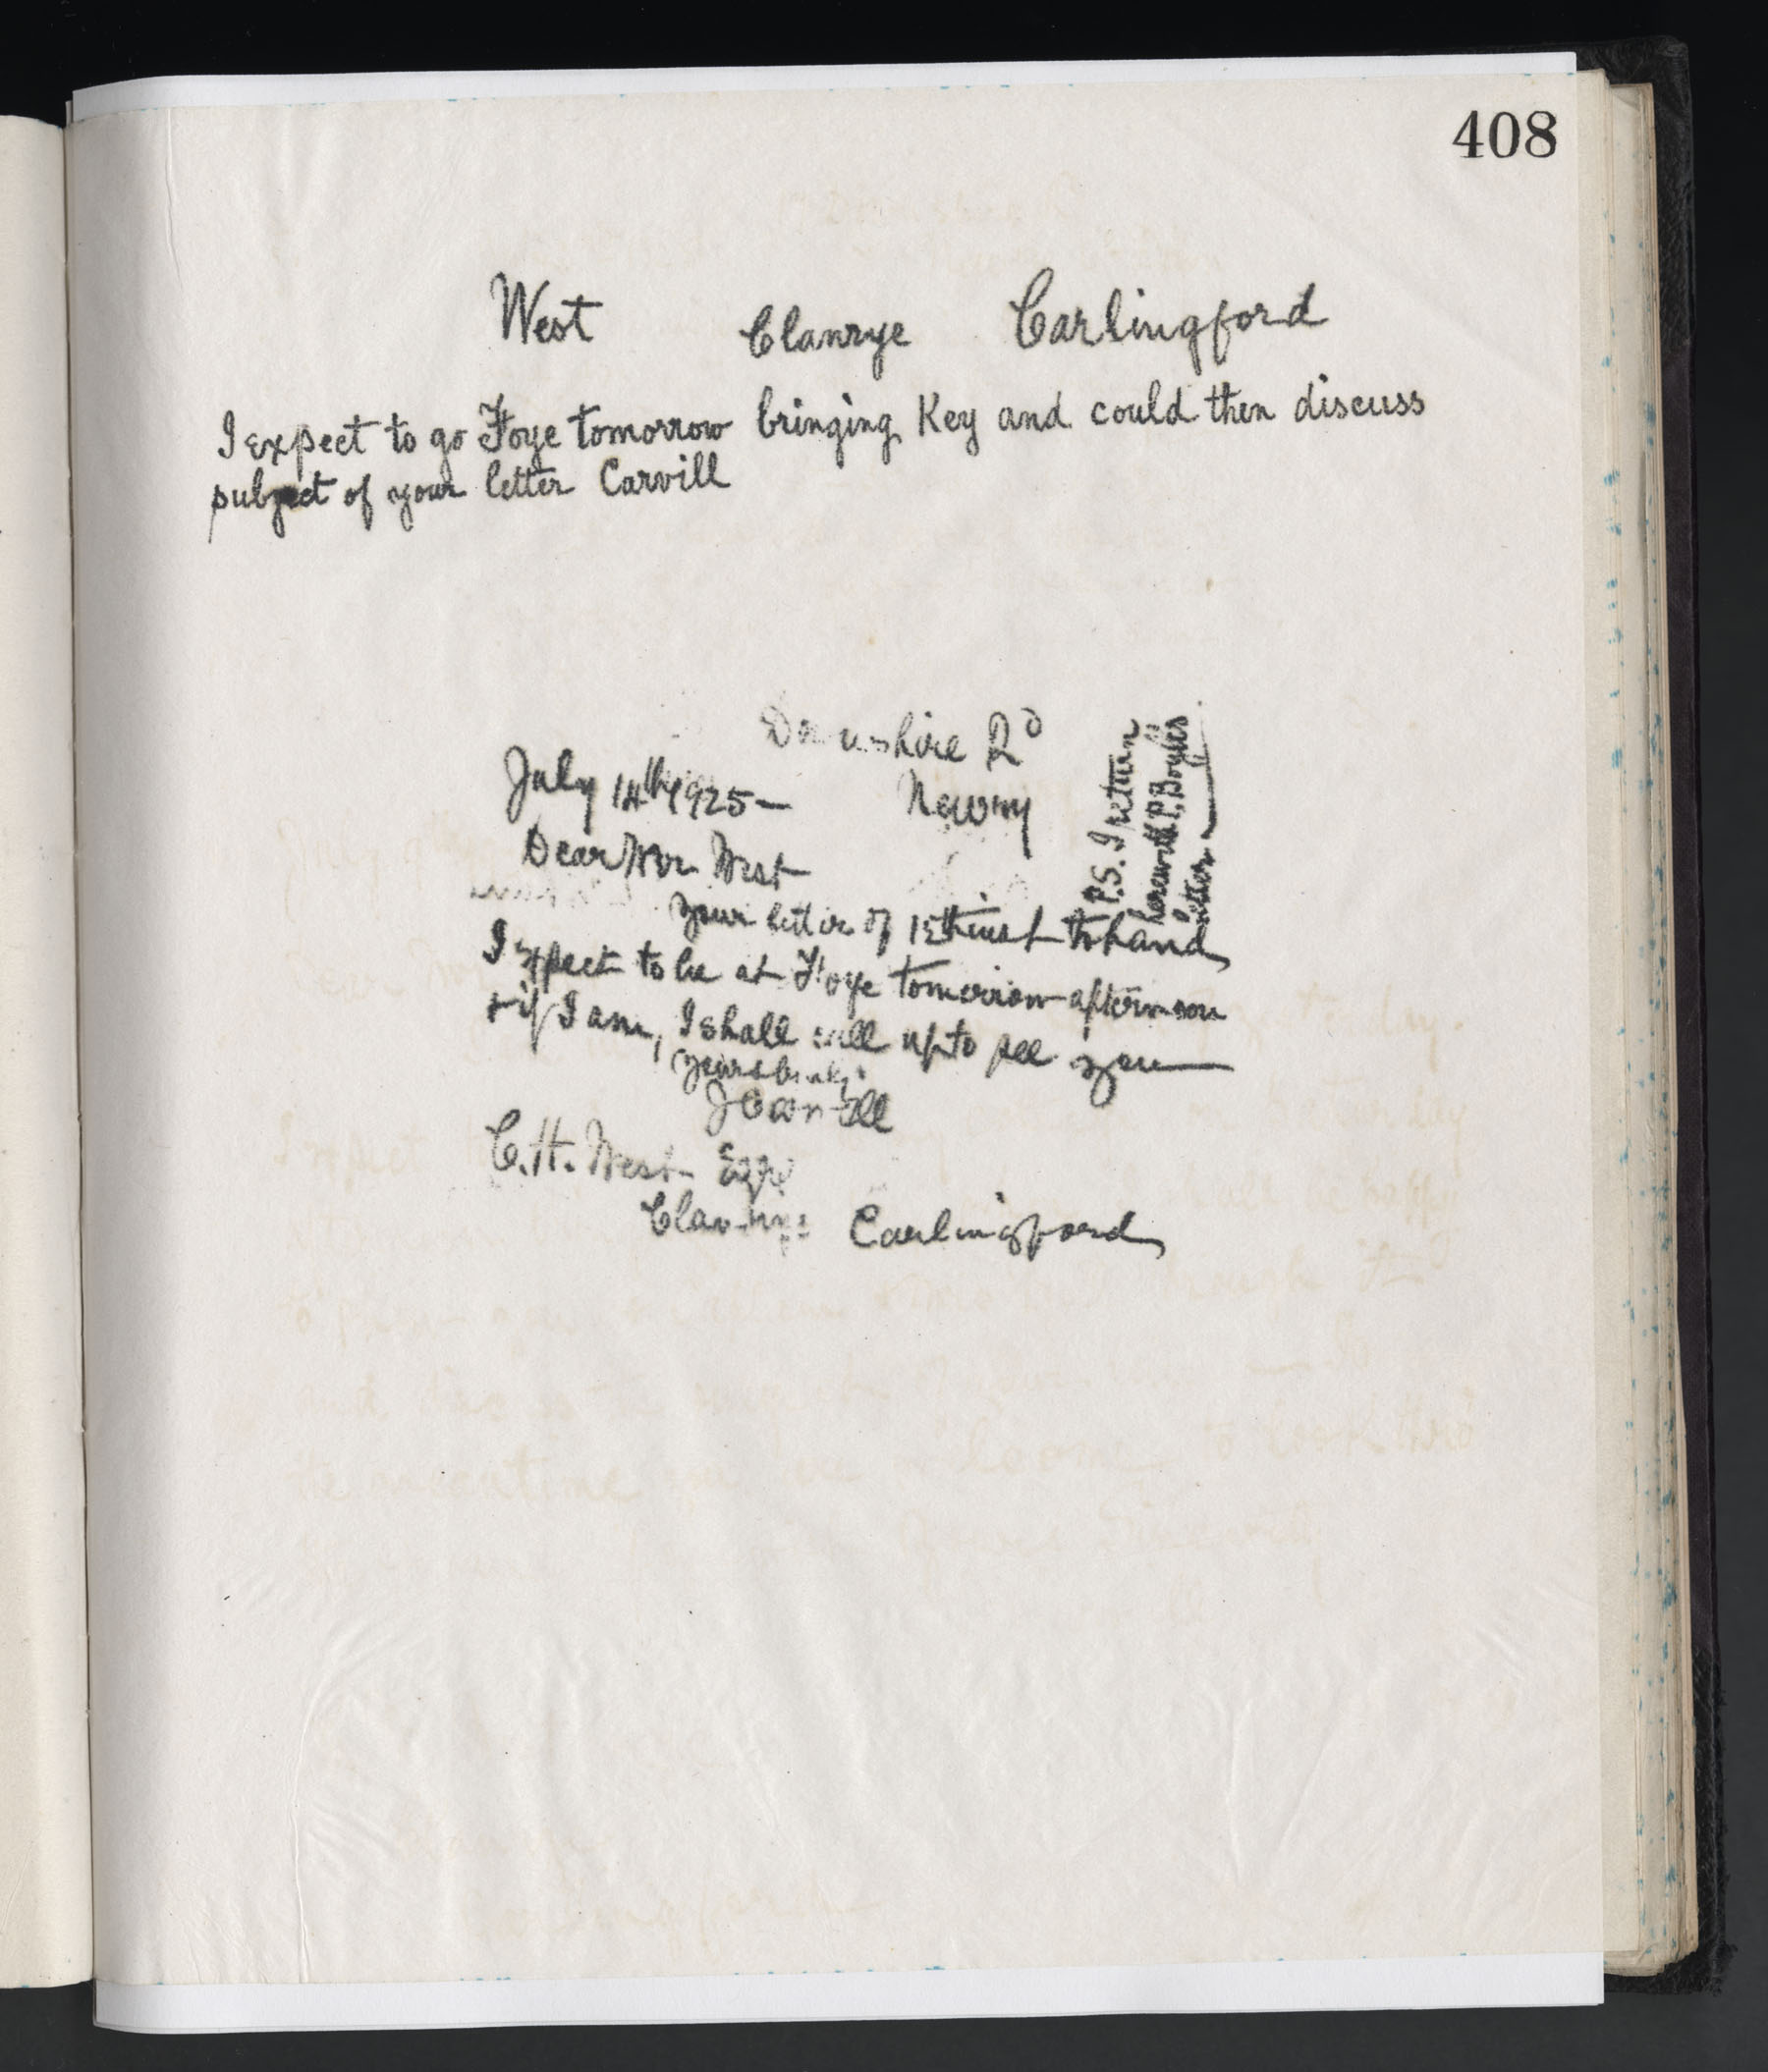 408
West Clanrye Carlingford
I expect to go Foye tomorrow bringing Key and could then discuss
subject of your letter Carvill
Downshire Rd
July 14th 1925 — Newry
Dear Mr West
your letter of inst to hand
I expect to be at Foye tomorrow afternoon
+ if I am, I shall call up to see you
yours truly
JCarvill
C.H. West Esqre
Clanrye Carlingford
P.S. I return
herewith P. Boyle's
letter